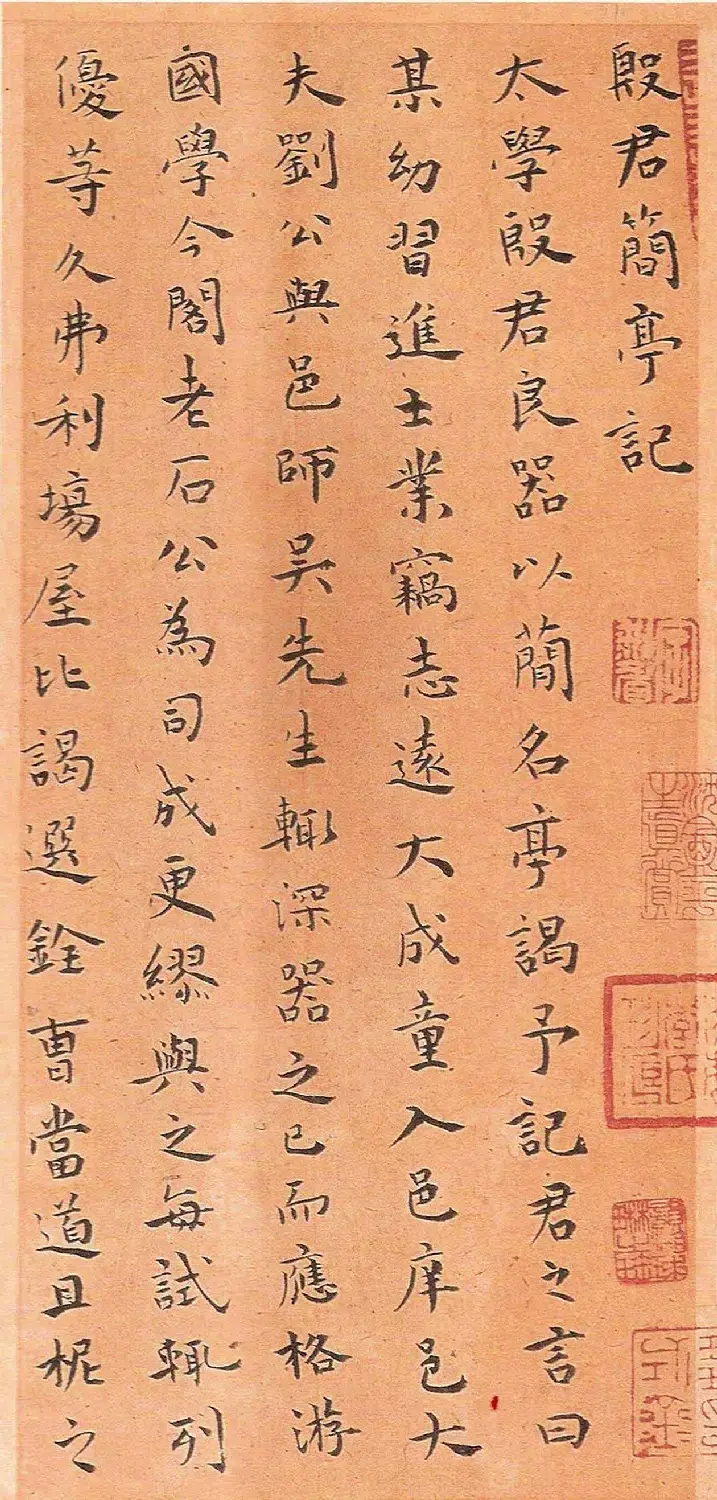 殷君簡亭記
太學殷君良器以蕑名亭謁予記君之言曰
某幼習進士業竊志遠大成童入邑庠邑大
夫劉公與邑師吳先生輙深器之已而應格游
國學今閣老石公為司成更繆與之每試輒列
優等久弗利場屋比謁選銓曺當道且柅之